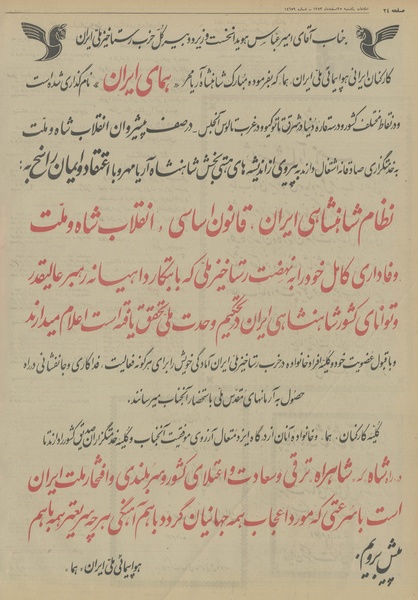 صفحه ۲۴
جناب آقای امیرعباس هویدا نخست وزیر و دبیر کل حزب رستاخیز ملی ایران
کارکنان ایرانی هواپیمائی ملی ایران، هما، که بفرموده مبارک شاهنشاه آریامهر «همای ایران» نام گذاری شده است
و در نقاط مختلف کشور و در سه قاره دنیا در شرق تا توکیو و در غرب تا لوس آنجلس - در صف پیشروان انقلاب شاه و ملت
به خدمتگزاری صادقانه اشتغال دارند به پیروی از اندیشه های هستی بخش شاهنشاه آریامهر و با اعتقاد و ایمان راسخ به:
نظام شاهنشاهی ایران، قانون اساسی، انقلاب شاه و ملت
وفاداری کامل خود را به نهضت رستاخیز ملی که با ابتکار داهیانه رهبر عالیقدر
و توانای کشور شاهنشاهی ایران در تحکیم وحدت ملی تحقق یافته است اعلام میدارند
و با قبول عضویت خود و کلیه افراد خانواده در حزب رستاخیز ملی ایران آمادگی خویش را برای هرگونه فعالیت، فداکاری و جانفشانی در راه
حصول به آرمانهای مقدس ملی باستحضار آنجناب میرسانند.
کلیه کارکنان، هما، و خانواده آنان از درگاه ایزد متعال آرزوی موفقیت آنجناب و کلیه خدمتگزاران صدیق کشور را دارند تا
در راه شاه که شاهراه ترقی و سعادت و اعتلای کشور و سربلندی و افتخار ملت ایران
است با سرعتی که مورد اعجاب همه جهانیان گردد با هم آهنگی هر چه سریعتر همه با هم
پیش برویم.
هواپیمائی ملی ایران، هما،